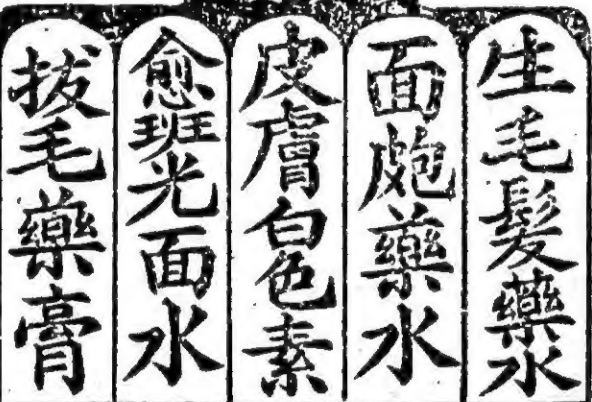 生毛髮藥水
面皰藥水
皮膚白色素
愈班光面水
拔毛藥膏